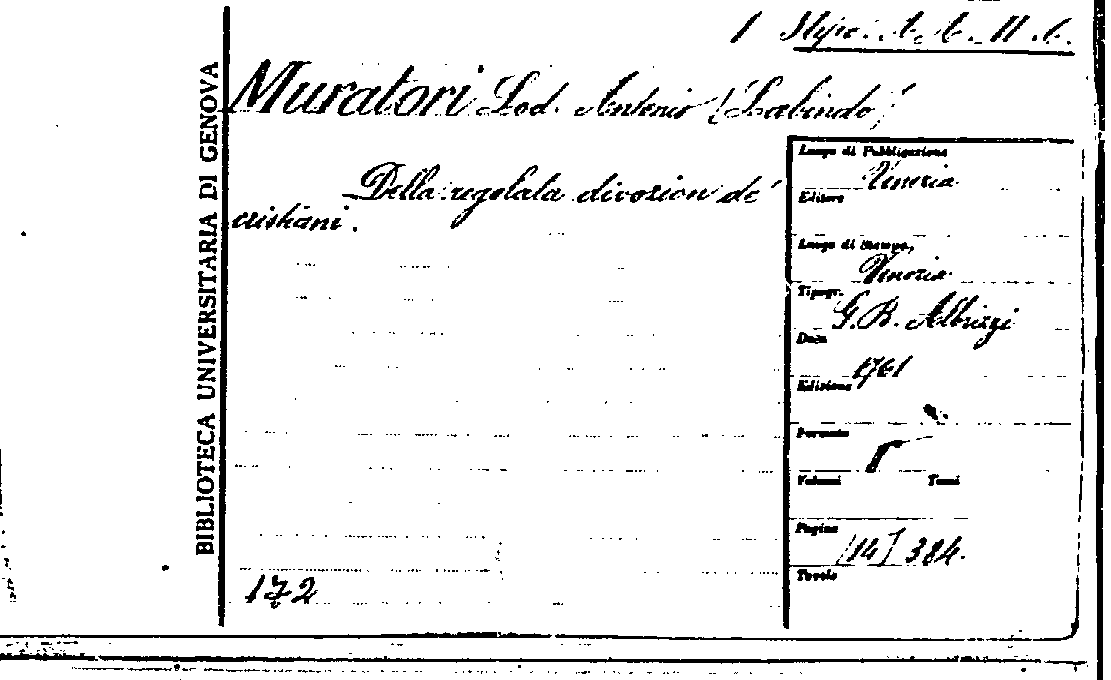 BIBLIOTECA UNIVERSITARIA DI GENOVA
Muratori Lod. Antonio (Labindo)
Della regolata divozion de'
cristiani.
Luogo di Pubblicazione
Venezia
Editore
Luogo di Stampa,
Venezia
Tipogr.
G.B. Albrizzi
Data
1761
Edizione
Formato
8
Volumi Tomi
Pagine
[14] 384.
Tavole
172